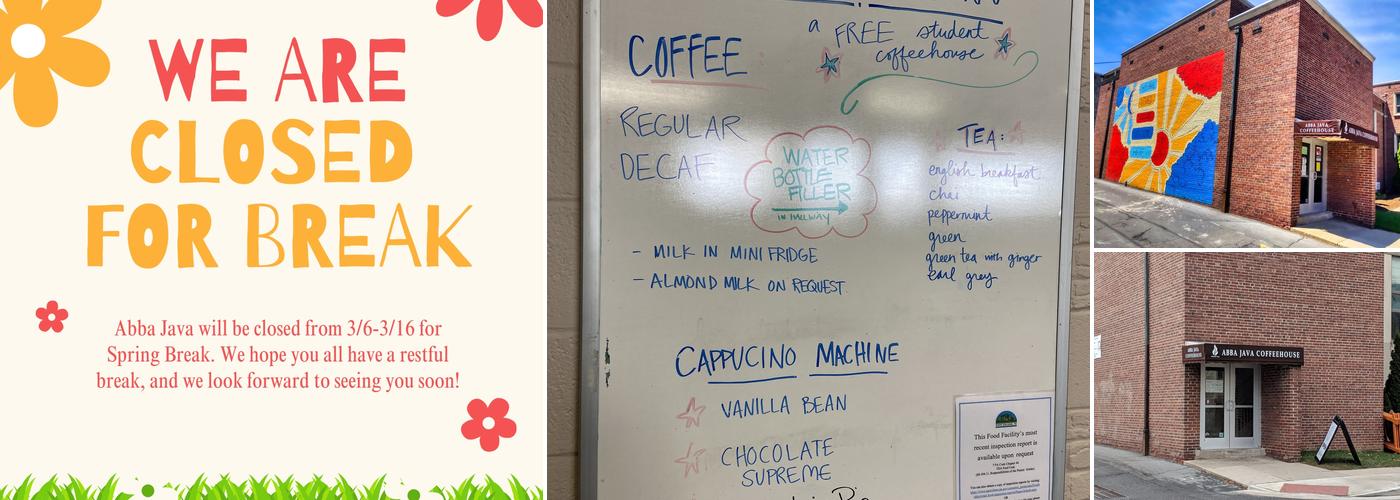 WE ARE
CLOSED
FOR BREAK
Abba Java will be closed from 3/6-3/16 for
Spring Break. We hope you all have a restful
break, and we look forward to seeing you soon!
a FREE student
coffeehouse
COFFEE
REGULAR
DECAF
WATER
BOTTLE
FILLER
IN HALLWAY
- MILK IN MINI FRIDGE
- ALMOND MILK ON REQUEST
TEA:
english breakfast
chai
peppermint
green
green tea with ginger
earl grey
CAPPUCINO MACHINE
VANILLA BEAN
CHOCOLATE
SUPREME
This Food Facility's most
recent inspection report is
available upon request
ABBA JAVA
COFFEEHOUSE
ABBA JAVA COFFEEHOUSE